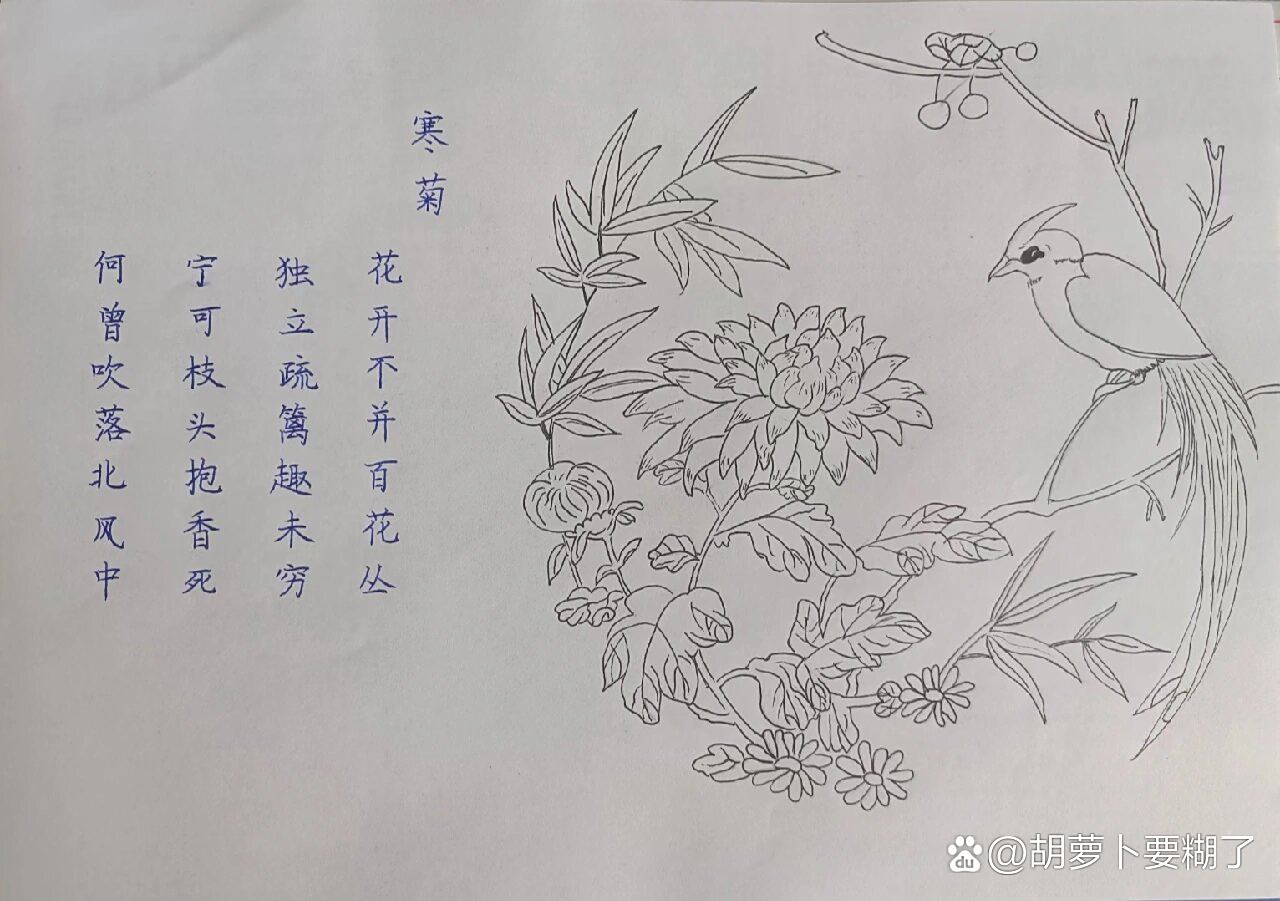 寒菊
花开不并百花丛
独立疏篱趣未穷
宁可枝头抱香死
何曾吹落北风中
du @胡萝卜要糊了